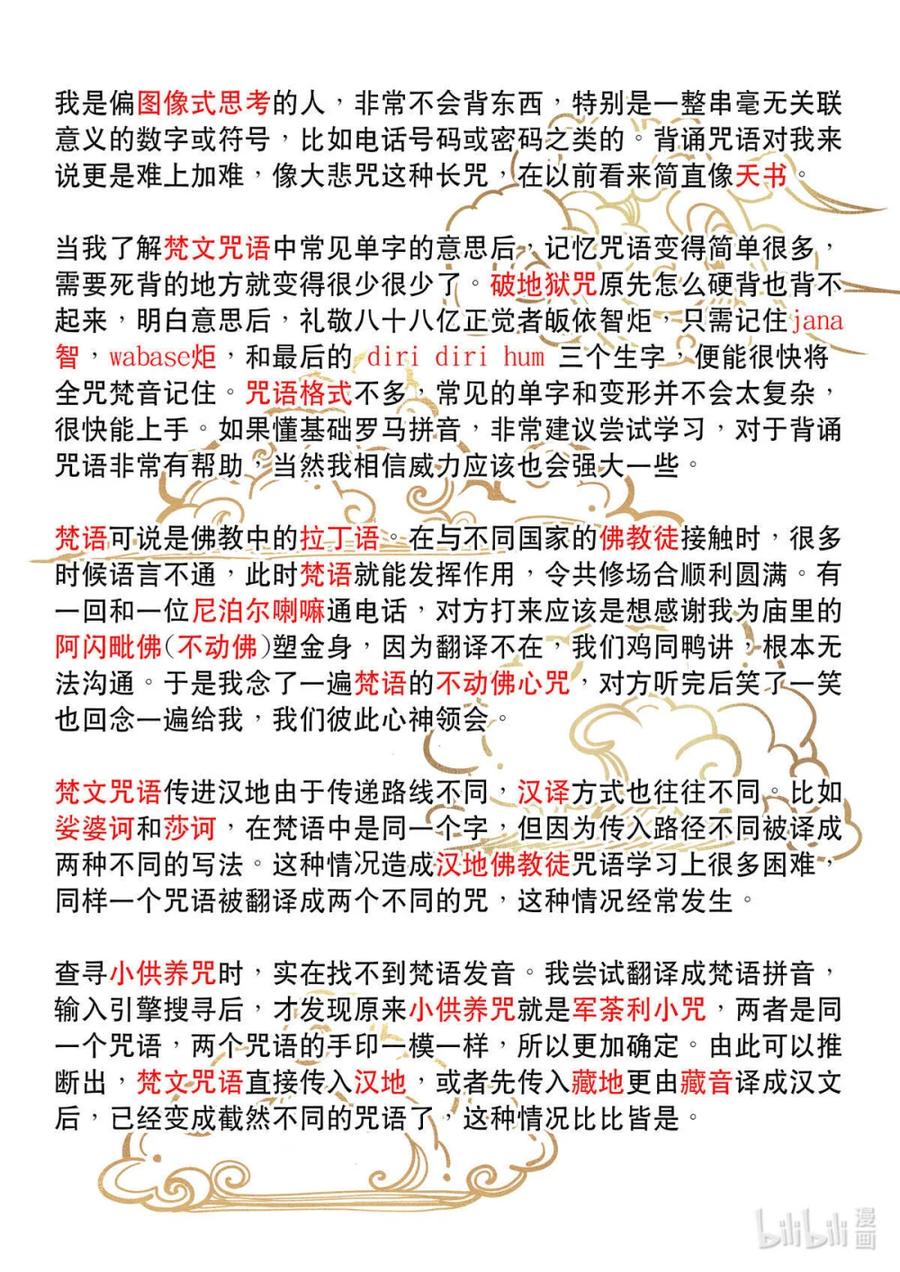 我是偏图像式思考的人，非常不会背东西，特别是一整串毫无关联
意义的数字或符号，比如电话号码或密码之类的。背诵咒语对我来
说更是难上加难，像大悲咒这种长咒，在以前看来简直像天书。
当我了解梵文咒语中常见单字的意思后，记忆咒语变得简单很多，
需要死背的地方就变得很少很少了。破地狱咒原先怎么硬背也背不
起来，明白意思后，礼敬八十八亿正觉者皈依智炬，只需记住jana
智，wabase炬，和最后的 diri diri hum 三个生字，便能很快将
全咒梵音记住。咒语格式不多，常见的单字和变形并不会太复杂，
很快能上手。如果懂基础罗马拼音，非常建议尝试学习，对于背诵
咒语非常有帮助，当然我相信威力应该也会强大一些。
梵语可说是佛教中的拉丁语。在与不同国家的佛教徒接触时，很多
时候语言不通，此时梵语就能发挥作用，令共修场合顺利圆满。有
一回和一位尼泊尔喇嘛通电话，对方打来应该是想感谢我为庙里的
阿闪毗佛(不动佛)塑金身，因为翻译不在，我们鸡同鸭讲，根本无
法沟通。于是我念了一遍梵语的不动佛心咒，对方听完后笑了一笑
也回念一遍给我，我们彼此心神领会。
梵文咒语传进汉地由于传递路线不同，汉译方式也往往不同。比如
娑婆诃和莎诃，在梵语中是同一个字，但因为传入路径不同被译成
两种不同的写法。这种情况造成汉地佛教徒咒语学习上很多困难，
同样一个咒语被翻译成两个不同的咒，这种情况经常发生。
查寻小供养咒时，实在找不到梵语发音。我尝试翻译成梵语拼音，
输入引擎搜寻后，才发现原来小供养咒就是军荼利小咒，两者是同
一个咒语，两个咒语的手印一模一样，所以更加确定。由此可以推
断出，梵文咒语直接传入汉地，或者先传入藏地更由藏音译成汉文
后，已经变成截然不同的咒语了，这种情况比比皆是。
bilibili 漫画